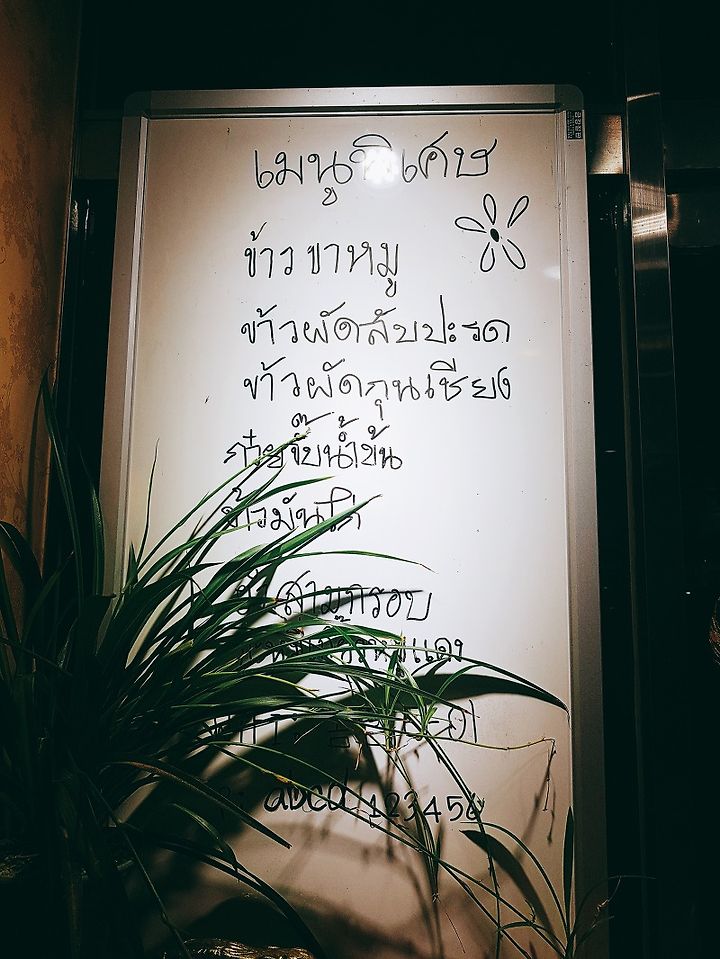 เมนูพิเศษ
ข้าวขาหมู
ข้าวผัดสับปะรด
ข้าวผัดกุนเชียง
ก๋วยจั๊บน้ำข้น
ข้าวมันไก่
ยำสามกรอบ
หมูแดง
abcd123456